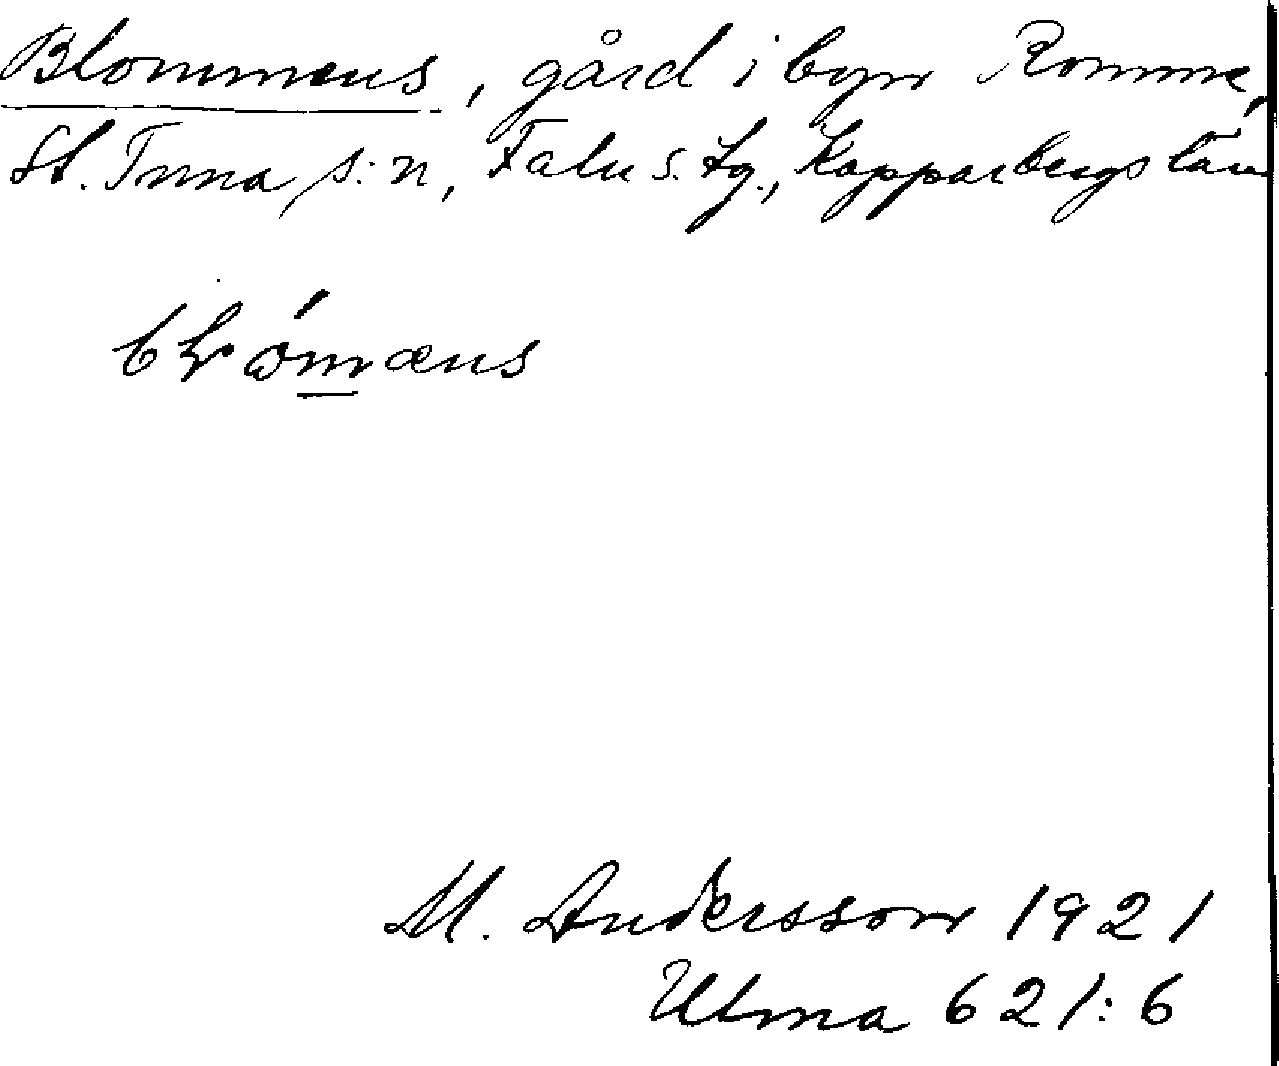 Blommens, gård i byn Romme,
St. Tuna s:n, Falu s. tg., Kopparbergs län
M. Andersson 1921
Ulma 621:6